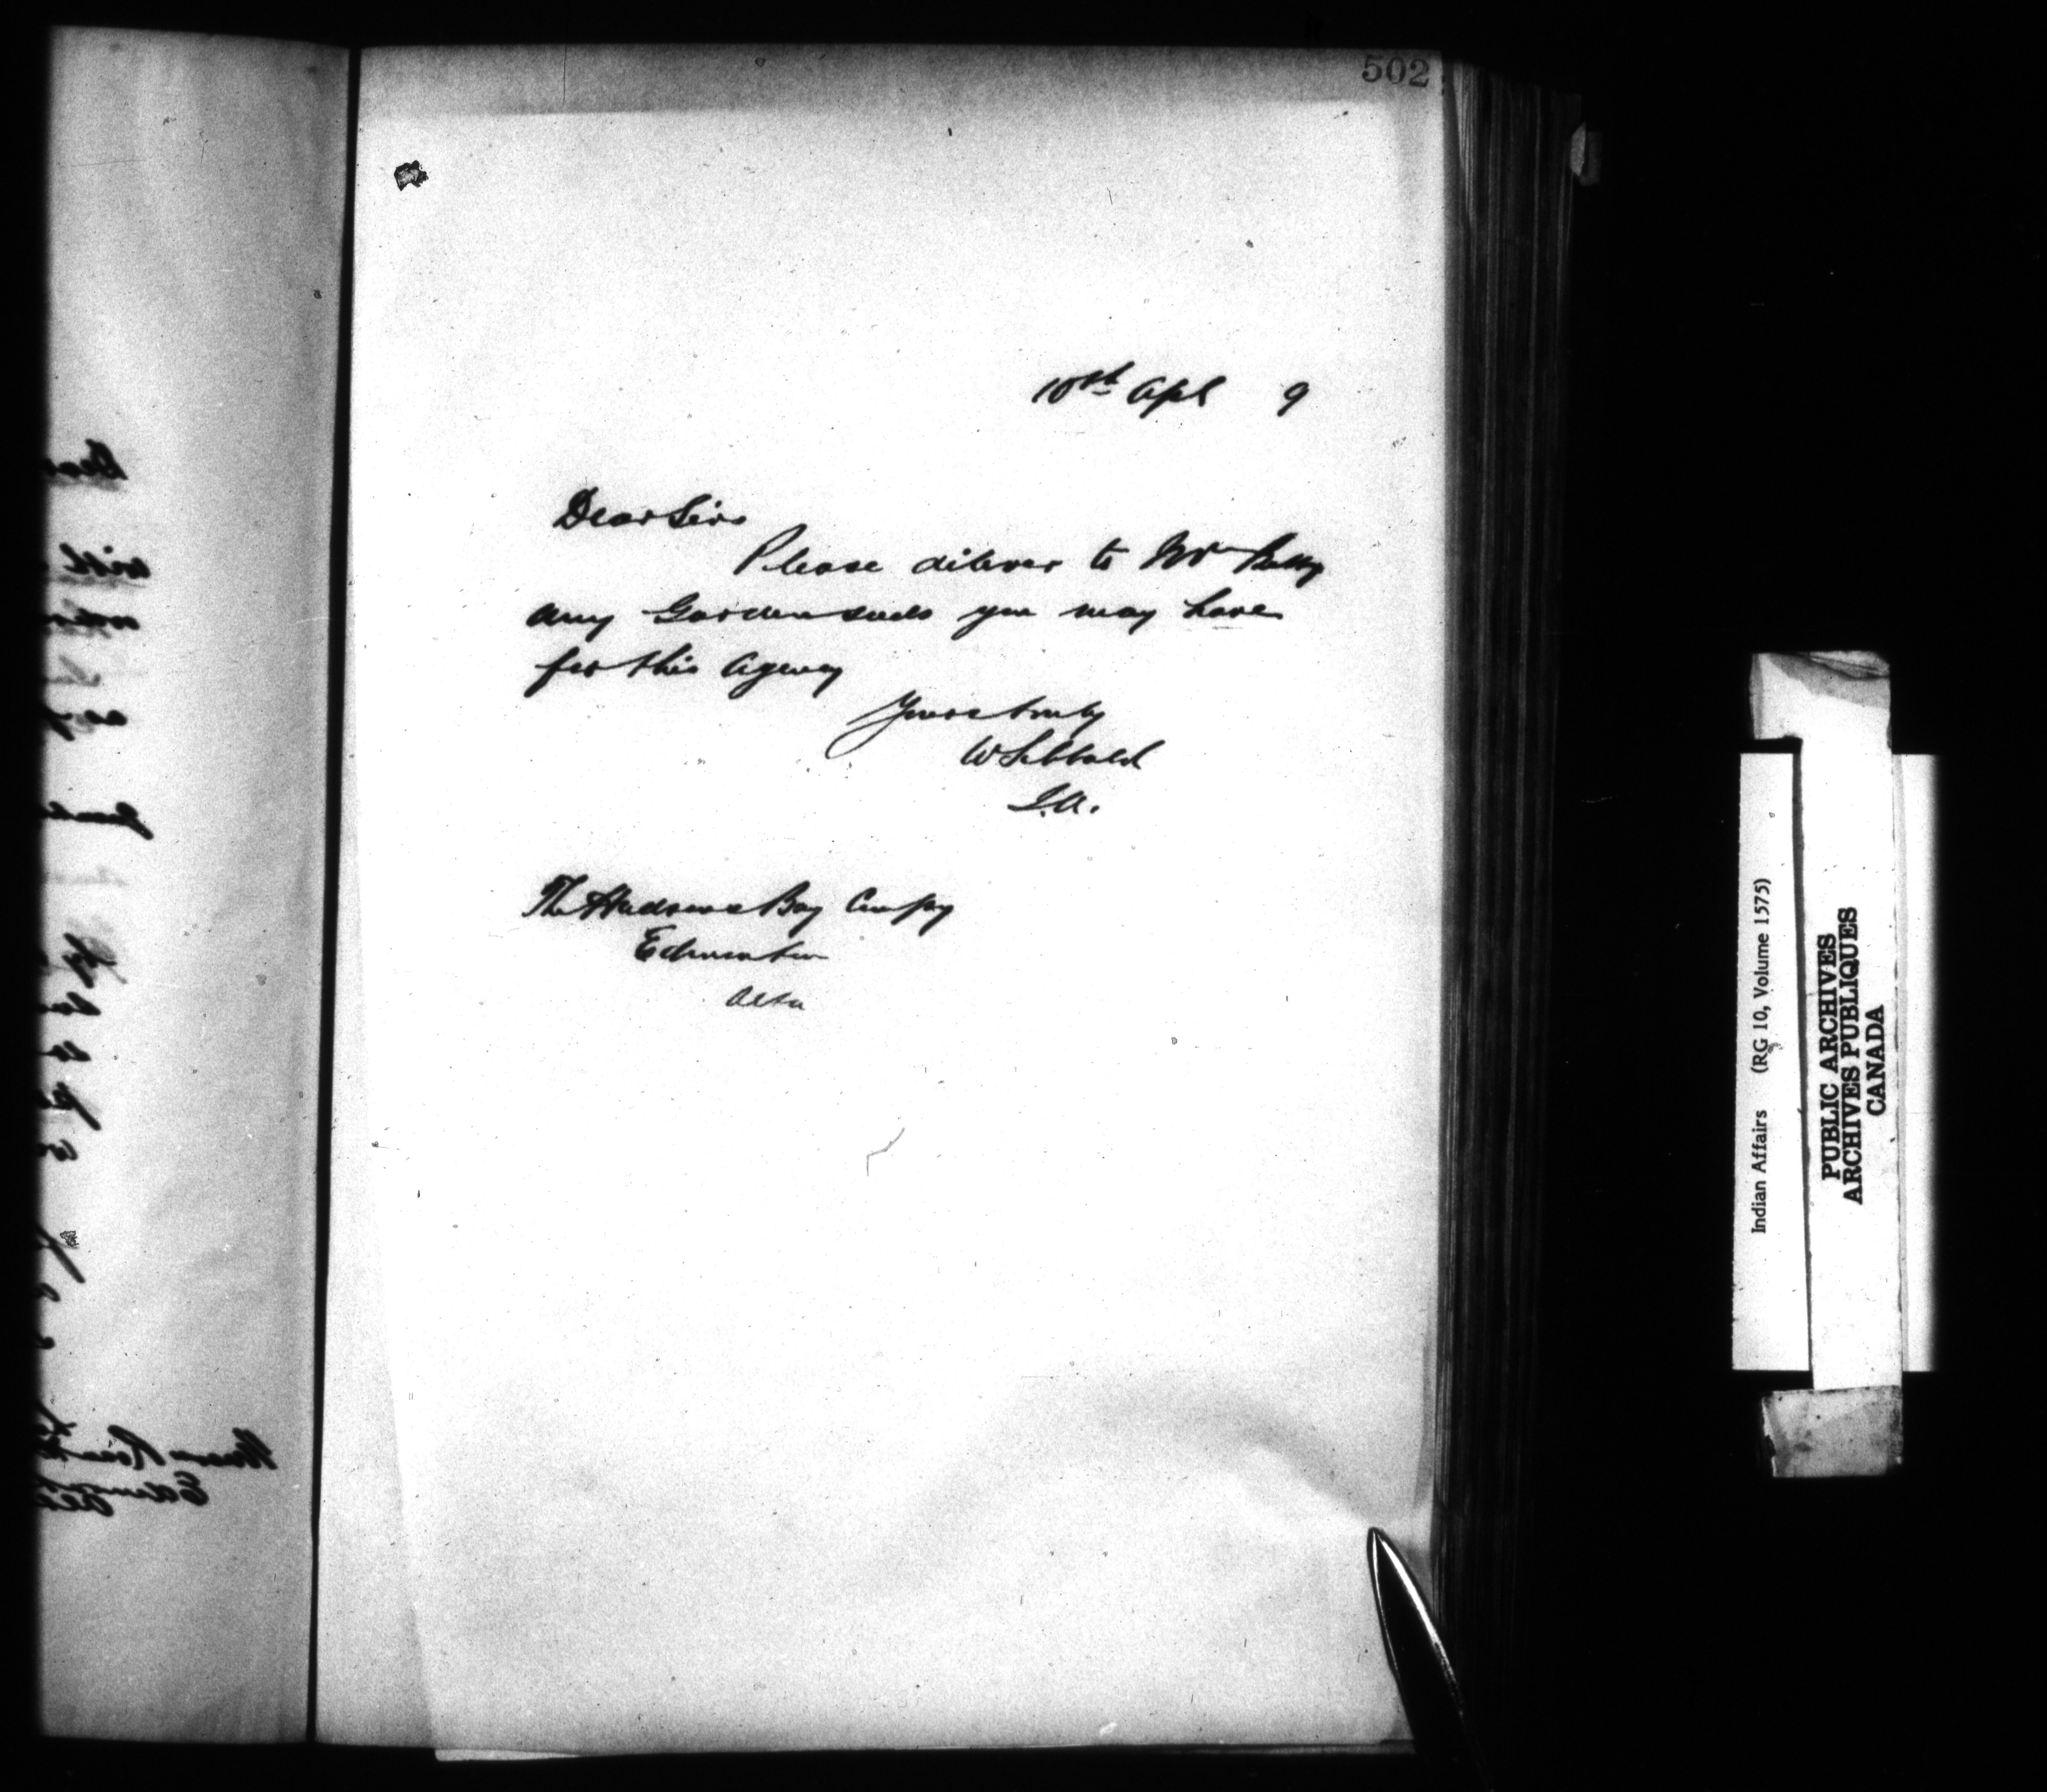 502
10th Apl 9
Dear Sirs
Please deliver to Mr
any Garden seeds you may have
for this Agency
Yours truly
W Sibbald
I.A.
The Hudsons Bay Compy
Edmonton
Alta
Indian Affairs (RG 10, Volume 1575)
PUBLIC ARCHIVES
ARCHIVES PUBLIQUES
CANADA